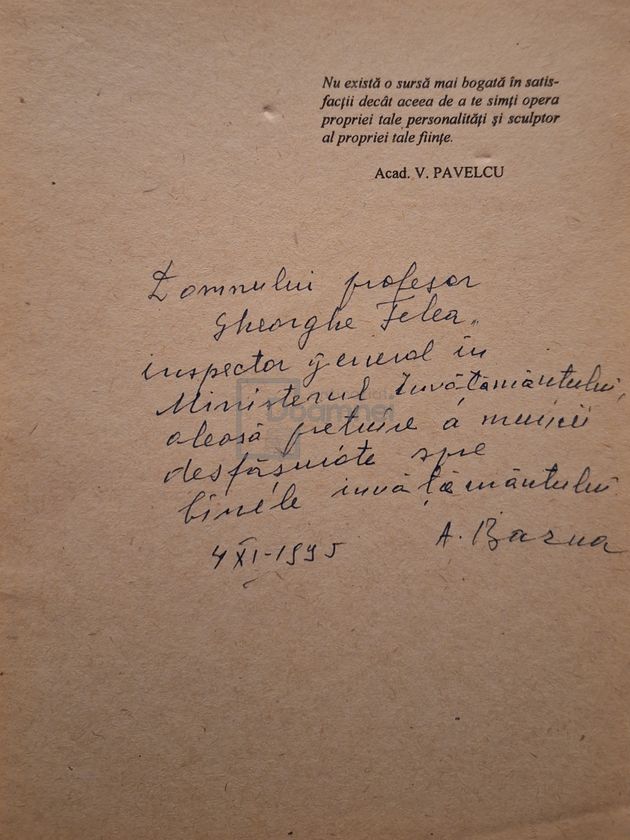 Nu există o sursă mai bogată în satis-
facții decât aceea de a te simți opera
propriei tale personalități și sculptor
al propriei tale ființe.
Acad. V. PAVELCU
Domnului profesor
Gheorghe Felea,
inspector general în
Ministerul Învățământului,
aleasă prețuire a muncii
desfășurate spre
binele învățământului
4 XI-1995
A. Barna